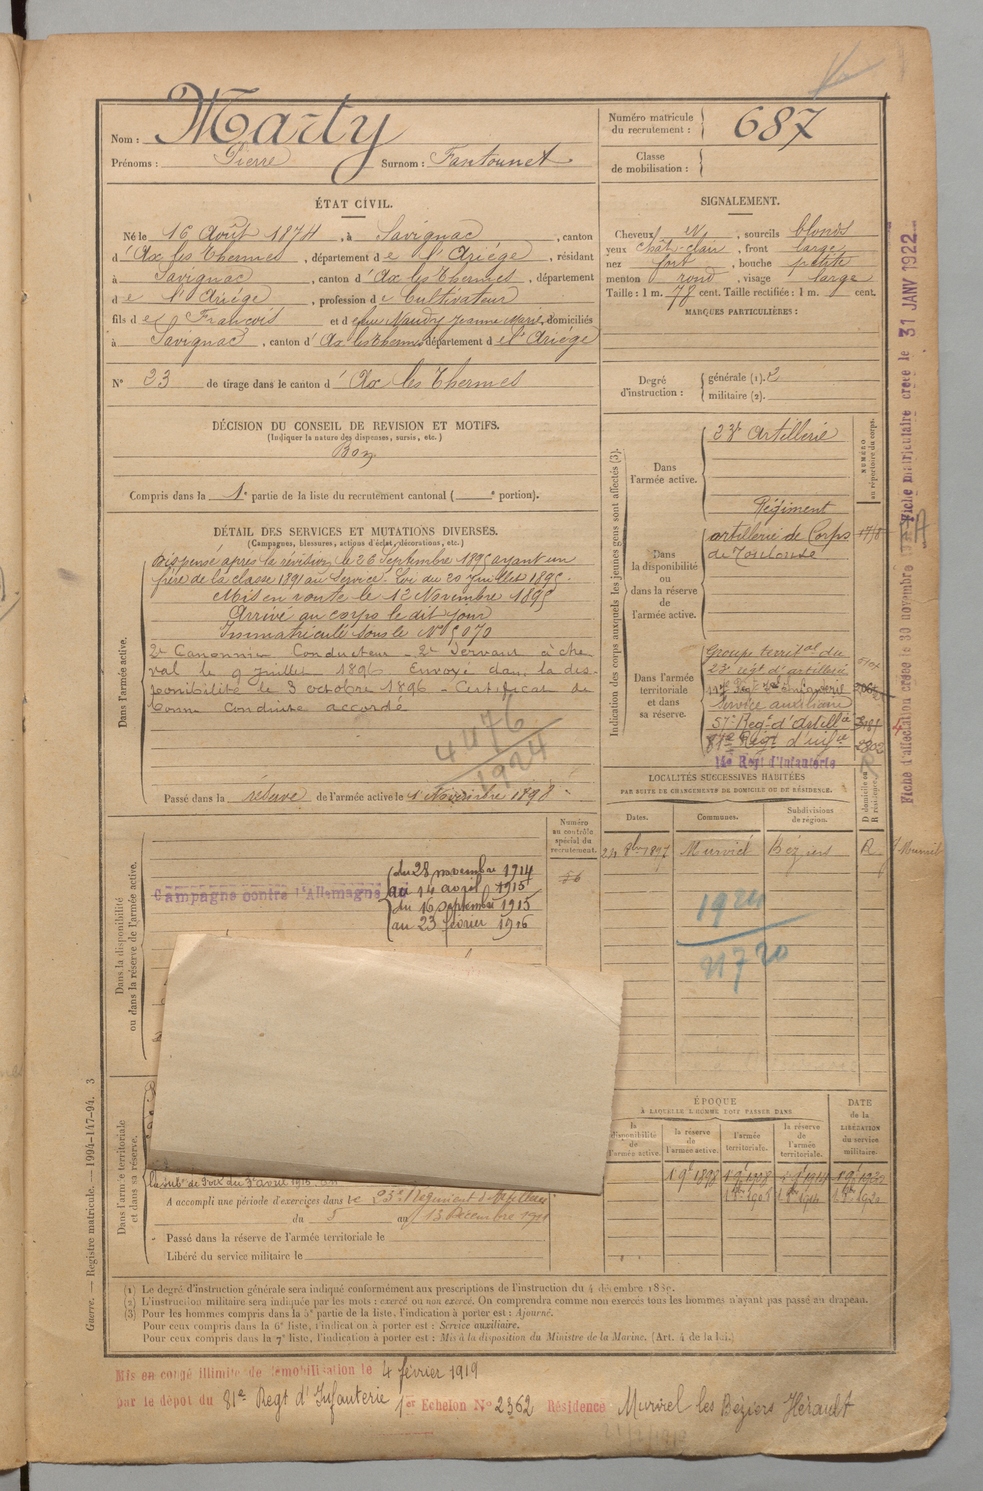 Nom : Marty
Prénoms : Pierre Surnom : Fantounet
Numéro matricule
du recrutement : 687
Classe
de mobilisation :
ÉTAT CIVIL.
Né le 16 Août 1874, à Savignac, canton
d'Ax les Thermes, département de l'Ariége, résidant
à Savignac, canton d'Ax les Thermes, département
de l'Ariége, profession de Cultivateur
fils de François et de Naudy Jeanne Marie, domiciliés
à Savignac, canton d'Ax les Thermes département de l'Ariége
N° 23 de tirage dans le canton d'Ax les Thermes
SIGNALEMENT.
Cheveux, sourcils blonds
yeux chât-clair, front large
nez fort, bouche petite
menton rond, visage large
Taille : 1 m. 78 cent. Taille rectifiée : 1 m. cent.
MARQUES PARTICULIÈRES :
Degré
d'instruction :
générale (1). 2
militaire (2).
DÉCISION DU CONSEIL DE REVISION ET MOTIFS.
(Indiquer la nature des dispenses, sursis, etc.)
Bon
Compris dans la 1e partie de la liste du recrutement cantonal ( e portion).
DÉTAIL DES SERVICES ET MUTATIONS DIVERSES.
(Campagnes, blessures, actions d'éclat, décorations, etc.)
Dans l'armée active.
Dispensé après la révision le 26 Septembre 1895 ayant un
frère de la classe 1891 au Service. Loi du 20 Juillet 1895.
Mis en route le 12 Novembre 1895
Arrivé au corps le dit jour
Immatriculé sous le N° 5070
2e Canonnier Conducteur - 2e Servant à che
val le 9 juillet 1896 Envoyé dans la dis-
ponibilité le 3 octobre 1896 - Certificat de
bonne Conduite accordé
4476
1924
Passé dans la réserve de l'armée active le 1 Novembre 1898
Indication des corps auxquels les jeunes gens sont affectés (3).
NUMÉRO
au répertoire du corps.
Dans
l'armée active.
23e Artillerie
Dans
la disponibilité
ou
dans la réserve
de
l'armée active.
Régiment
artillerie de Corps
de Toulouse
Dans l'armée
territoriale
et dans
sa réserve.
Groupe territal du
23e régt d'artillerie
Service auxiliaire
57e Regt d'Artillie
81e Régt d'infie
14e Regt d'Infanterie
LOCALITÉS SUCCESSIVES HABITÉES
PAR SUITE DE CHANGEMENTS DE DOMICILE OU DE RÉSIDENCE.
Dates. Communes. Subdivisions
de région.
D domicile ou
R résidence.
24 8bre 1897 Murviel Béziers R
1924
21720
Dans la disponibilité
ou dans la réserve de l'armée active.
Numéro
au contrôle
spécial du
recrutement.
Campagne contre l'Allemagne
du 28 novembre 1914
au 14 avril 1915
du 16 septembre 1915
au 23 février 1916
Dans l'armée territoriale
et dans sa réserve.
A accompli une période d'exercices dans le 23e Régiment d'Artillerie
du 5 au 13 Decembre
Passé dans la réserve de l'armée territoriale le
Libéré du service militaire le
ÉPOQUE
À LAQUELLE L'HOMME DOIT PASSER DANS
la
disponibilité
de
l'armée active.
la réserve
de
l'armée active.
l'armée
territoriale.
la réserve
de
l'armée
territoriale.
DATE
de la
LIBÉRATION
du service
militaire.
(1) Le degré d'instruction générale sera indiqué conformément aux prescriptions de l'instruction du 4 décembre 1889.
(2) L'instruction militaire sera indiquée par les mots : exercé ou non exercé. On comprendra comme non exercés tous les hommes n'ayant pas passé au drapeau.
(3) Pour les hommes compris dans la 5e partie de la liste, l'indication à porter est : Ajourné.
Pour ceux compris dans la 6e liste, l'indication à porter est : Service auxiliaire.
Pour ceux compris dans la 7e liste, l'indication à porter est : Mis à la disposition du Ministre de la Marine. (Art. 4 de la loi.)
Mis en congé illimité de démobilisation le 4 février 1919
par le dépôt du 81e Regt d'Infanterie 1er Echelon N° 2362 Résidence Murviel les Béziers Hérault
Guerre. — Registre matricule. — 1994-147-94. 3
Fiche matriculaire créée le 31 JANV 1922
Fiche d'affectation créée le 30 novembre